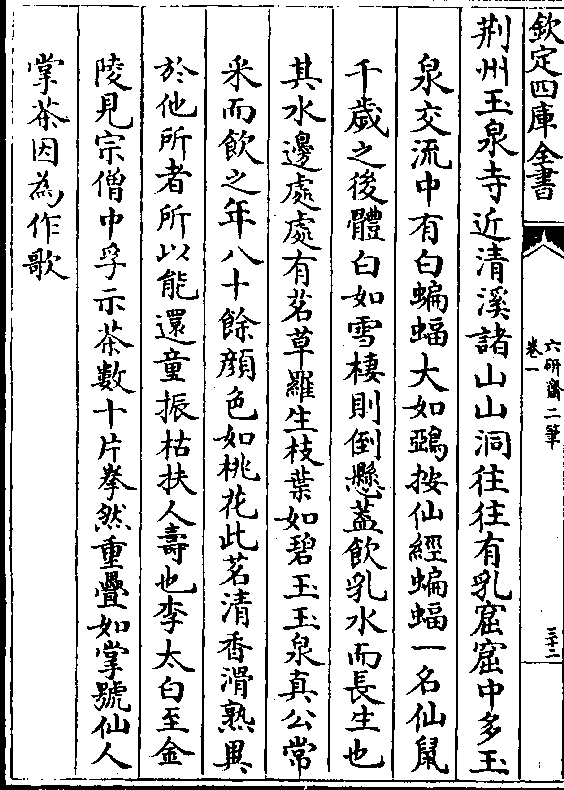 欽定四庫全書
六研齋二筆
卷一
三十二
荆州玉泉寺近清溪諸山山洞往往有乳窟窟中多玉
泉交流中有白蝙蝠大如鵶按仙經蝙蝠一名仙鼠
千歲之後體白如雪棲則倒懸葢飲乳水而長生也
其水邊處處有茗草羅生枝葉如碧玉玉泉真公常
采而飲之年八十餘顔色如桃花此茗清香滑熟異
於他所者所以能還童振枯扶人壽也李太白至金
陵見宗僧中孚示茶數十片拳然重疊如掌號仙人
掌茶因為作歌